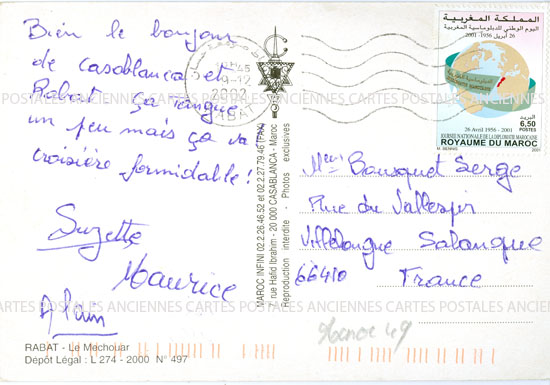 Bien le bonjour
de Casablanca et
Rabat ça tangue
un peu mais ça va
croisière formidable !
Suzette
Maurice
Alain
RABAT - Le Mechouar
Dépôt Légal : L 274 - 2000 N° 497
MAROC INFINI 02.2.26.46.52 et 02.2.27.79.46 (FAX)
rue Hafid Ibrahim - 20 000 CASABLANCA - Maroc
Reproduction interdite - Photos exclusives
16H45
2002
المملكة المغربية
اليوم الوطني للدبلوماسية المغربية
26 أبريل 1956 - 2001
البريد
6,50
POSTES
26 Avril 1956 - 2001
JOURNEE NATIONALE DE LA DIPLOMATIE MAROCAINE
ROYAUME DU MAROC
2001
Bousquet Serge
Rue du Vallespir
Villelongue Salanque
66410 France
CARTES POSTALES ANCIENNES CARTES POSTALES ANCIENNES
CARTES POSTALES ANCIENNES CARTES POSTALES ANCIENNES